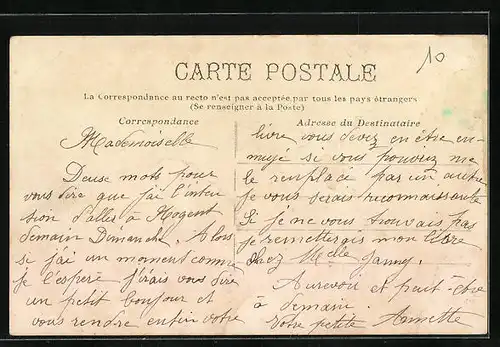 10
CARTE POSTALE
La Correspondance au recto n'est pas acceptée par tous les pays étrangers
(Se renseigner à la Poste)
Correspondance
Mademoiselle
Deuse mots pour
vous dire que j'ai l'inten
sion d'aller à Nogent
demain Dimanche. Alors
si j'ai un moment comme
je l'espère j'irais vous dire
un petit bonjour et
vous rendre enfin votre
Adresse du Destinataire
livre vous devez en être en-
nuyé si vous pouviez me
le remplacé par un autre
je vous serais reconnaissante
Si je ne vous trouvais pas
je remettrais mon livre
chez Melle
Aurevoir et peut-être
à demain.
Votre petite Annette